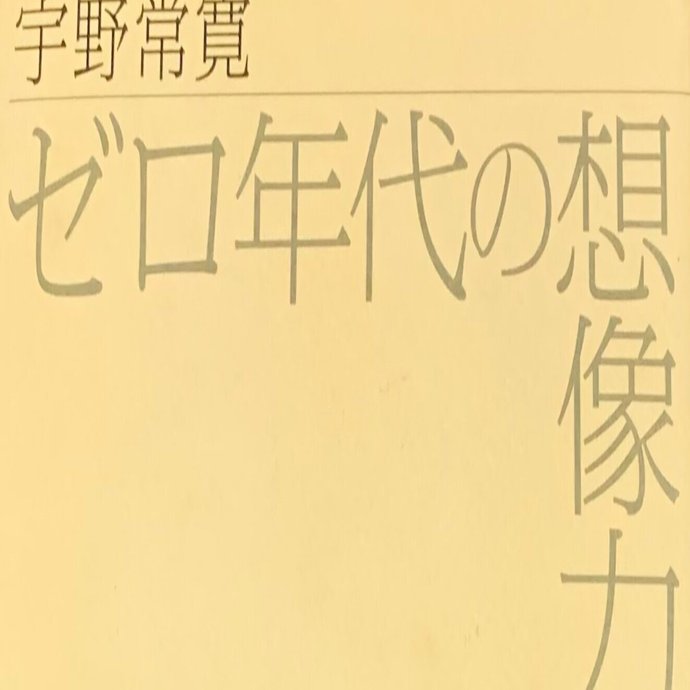 宇野常寛
ゼロ年代の想像力